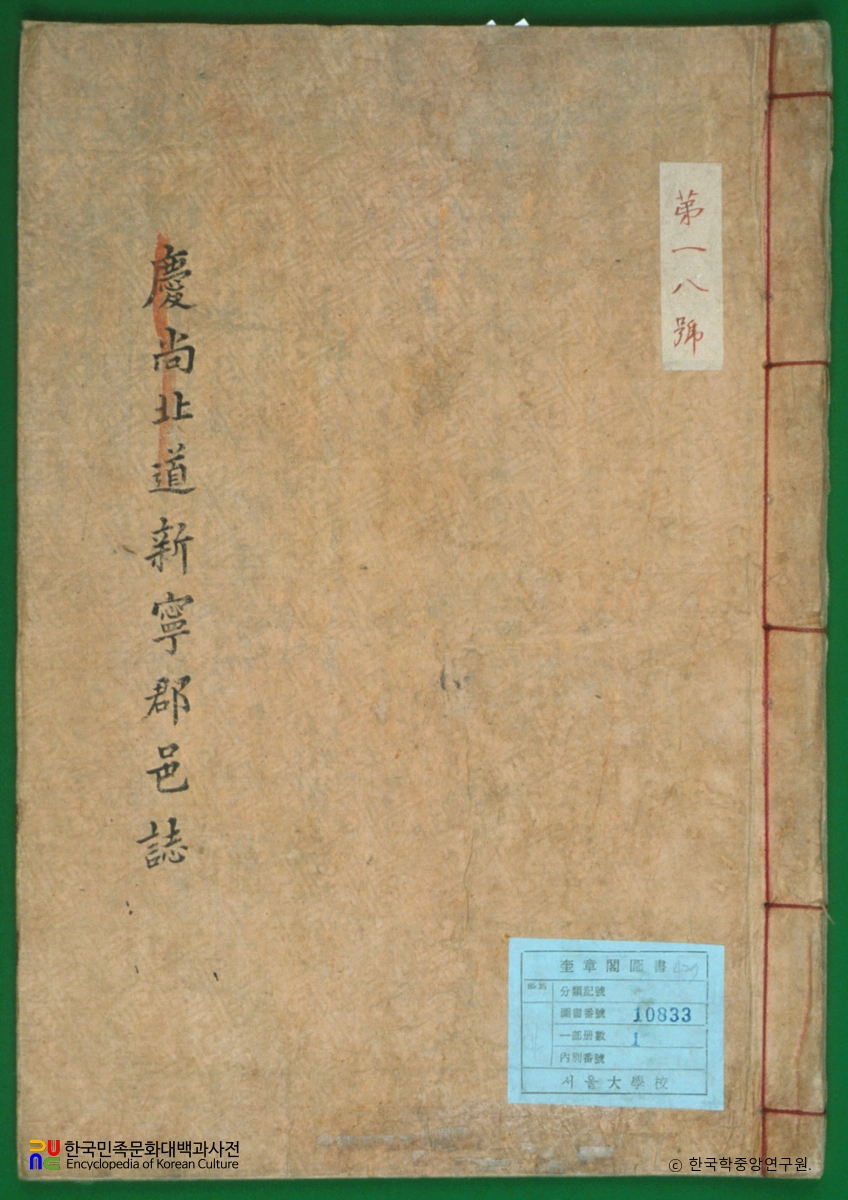 第一八號
慶尚北道新寧郡邑誌
奎章閣圖書
分類記號
圖書番號 10833
一部册數 1
內別番號
서울大學校
한국민족문화대백과사전
Encyclopedia of Korean Culture
© 한국학중앙연구원.